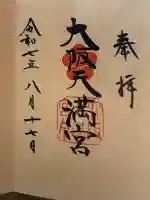 奉拝
大阪天満宮
令和七年八月十七日